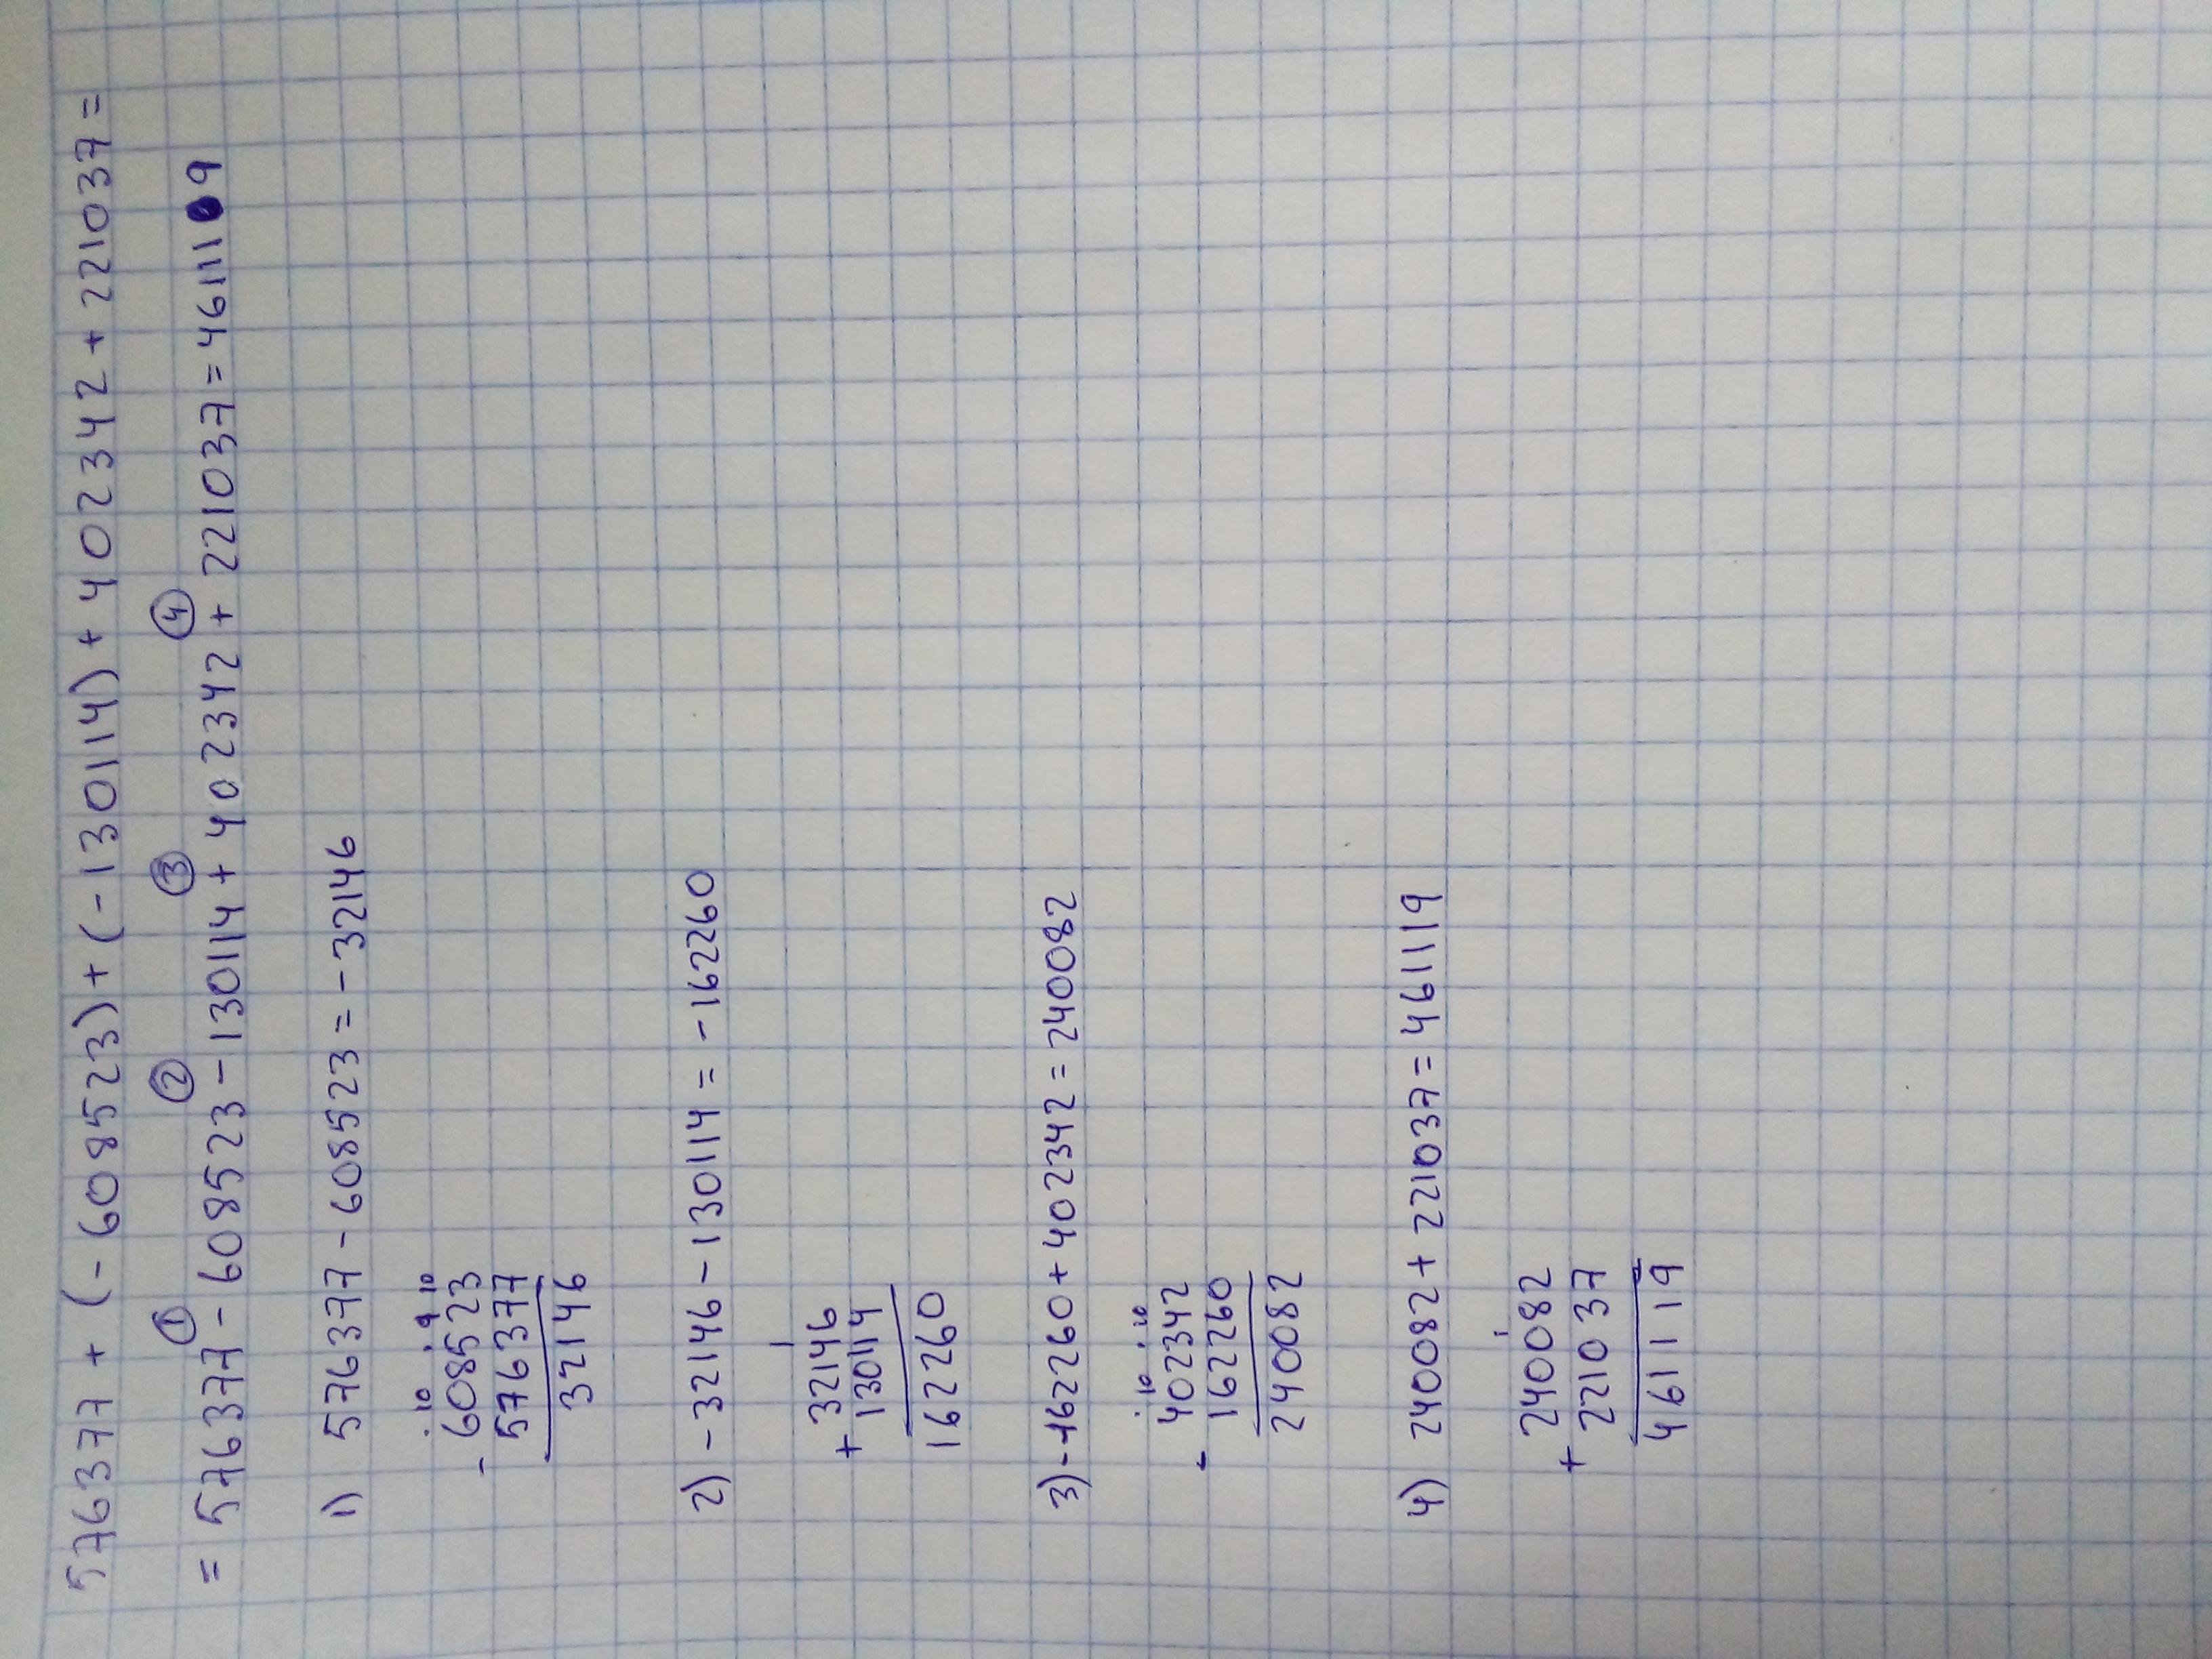 576377 + (-608523) + (-130114) + 402342 + 221037 =
① ② ③ ④
= 576377 - 608523 - 130114 + 402342 + 221037 = 461119
1) 576377 - 608523 = -32146
. 10 . . 9 10
- 608523
576377
32146
2) -32146 - 130114 = -162260
1
+ 32146
130114
162260
3) -162260 + 402342 = 240082
. 10 . . 10
- 402342
162260
240082
4) 240082 + 221037 = 461119
.
+ 240082
221037
461119